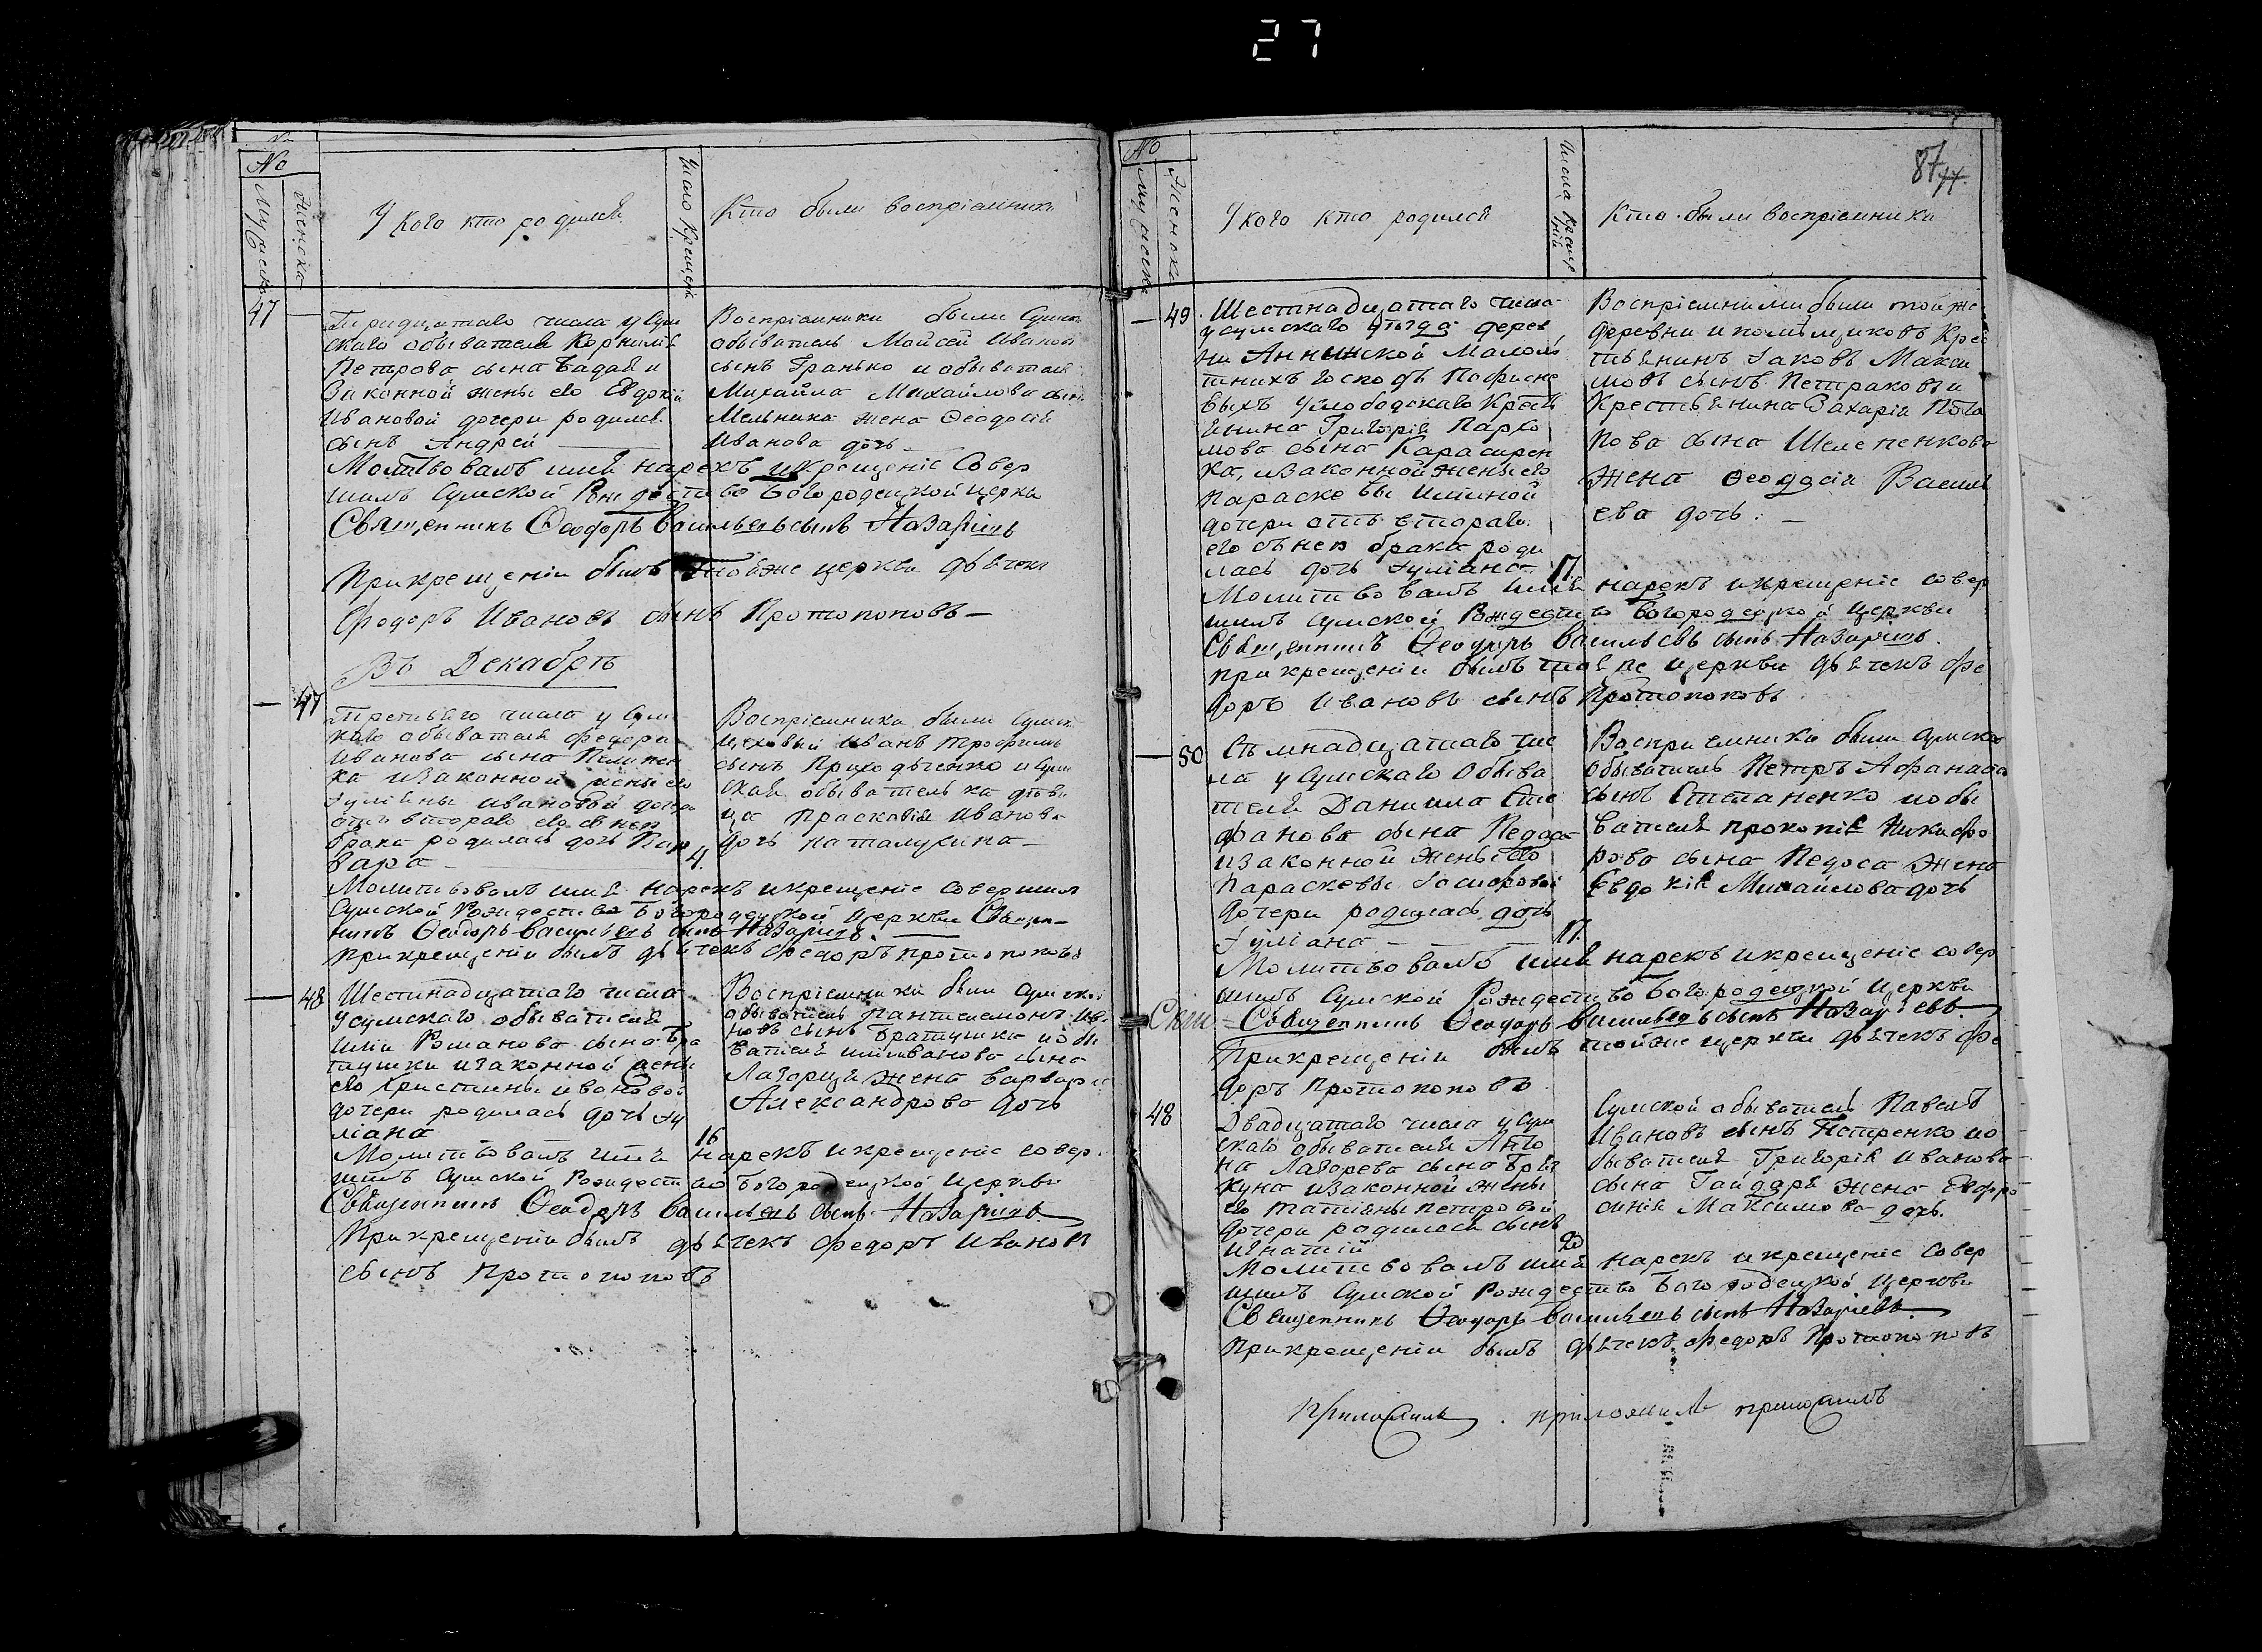 27
No
Мужеска
Женска
У кого кто родился
Число крещен
Кто были восприемники
47
Тиридцатаго числа у Сум
скаго обывателя Корнилія
Петрова сына Бадая и
Законной жены его Евдокіи
Ивановой дочери родился
сынъ Андрей
Восприемники были Сумск
обыватель Мойсей Иванов
сынъ Гранько и обывателя
Михайла Михайлова сына
Мельника жена Феодосія
Иванова дочь
Молитвовалъ имя нарекъ и крещеніе совер
шилъ Сумской Рождество Богородецкой церкви
Священникъ Ѳеодоръ Васильевъ сынъ Назарьевъ
При крещеніи былъ тоейже церкви дьячекъ
Федоръ Ивановъ сынъ Протопоповъ
Въ Декабрѣ
47
Третьяго числа у Сумс
каго обывателя Федора
Иванова сына
ка и законной жены его
Іуліяны Ивановой дочери
отъ втораго его с нею
брака родилась дочь Вар
вара
4.
Восприемники были Сумск
цеховый Иванъ Трофимов
сынъ Приходченко и Сум
ская обывателька дѣви
ца Прасковія Иванова
дочь Наталухина
Молитвовалъ имя нарекъ и крещеніе совершил
Сумской Рождество Богородецкой церкви Священ
никъ Ѳеодоръ Васильевъ сынъ Назарьевъ.
При крещеніи былъ дьячекъ Федоръ Протопоповъ
48
Шестнадцатаго числа
у Сумскаго обывателя
Иліи Романова сына Бра
тушки и законной жены
его Христины Ивановой
дочери родилась дочь Іу
ліана
16
Восприемники были Сумской
обыватель Пантелеймонъ Ива
новъ сынъ Братушка и обы
вателя Иванова сына
жена Варвара
Александрова дочь
Молитвовалъ имя нарекъ и крещеніе совер
шилъ Сумской Рождество Богородецкой церкви
Священникъ Ѳеодоръ Васильевъ сынъ Назарьевъ
При крещеніи былъ дьячекъ Федоръ Ивановъ
сынъ Протопоповъ
87
No
Мужеска
Женска
У кого кто родился
Числа креще
нія
Кто были восприемники
49
Шестнадцатаго числа
у Сумскаго уѣзда дерев
ни Аннинской Малолѣ
тнихъ Господъ
выхъ Крестья
янина Григорія Пархо
мова сына Карасирен
ка, и законной жены его
Парасковьи Ильиной
дочери отъ втораго
его съ нею брака роди
лась дочь Іуліана
17.
Восприемниками были тойже
деревни и помѣщиковъ Крес
тьянинъ Іаковъ Макси
мовъ сынъ Петраковъ и
Крестьянина Захарія Пота
пова сына Шелепенкова
жена Феодосія Василь
ева дочь:
Молитвовалъ имя нарекъ и крещеніе совер
шилъ Сумской Рождество Богородецкой церкви
Священникъ Ѳеодоръ Васильевъ сынъ Назарьевъ.
При крещеніи былъ тоя же церкви дьячекъ Фе
доръ Ивановъ сынъ Протопоповъ.
50
Семнадцатаго чис
ла у Сумскаго Обыва
теля Даніила Сте
фанова сына Педоса
и законной жены его
Парасковьи
дочери родилась дочь
Іуліана
17.
Восприемники были Сумской
Обыватель Петръ Афанасов
сынъ Степаненко и обы
вателя Прокопія Никифо
рова сына Педоса жена
Евдокія Михайлова дочь
Молитвовалъ имя нарекъ и крещеніе совер
шилъ Сумской Рождество Богородецкой церкви
Священникъ Ѳеодоръ Васильевъ сынъ Назарьевъ.
При крещеніи былъ тойже церкви дьячекъ Фе
доръ Протопоповъ
48
Двадцатаго числа у Сум
скаго обывателя Анто
на Лазорева сына
и законной жены
его Татіаны Петровой
дочери родился сынъ
Игнатій
20
Сумской обыватель Павелъ
Ивановъ сынъ Петренко и о
бывателя Григорія Иванова
сына Гайдаря жена Евфро
синія Максимова дочь.
Молитвовалъ имя нарекъ и крещеніе совер
шилъ Сумской Рождество Богородецкой церкви
Священникъ Ѳеодоръ Васильевъ сынъ Назарьевъ.
При крещеніи былъ дьячекъ Федоръ Протопоповъ
приложилъ